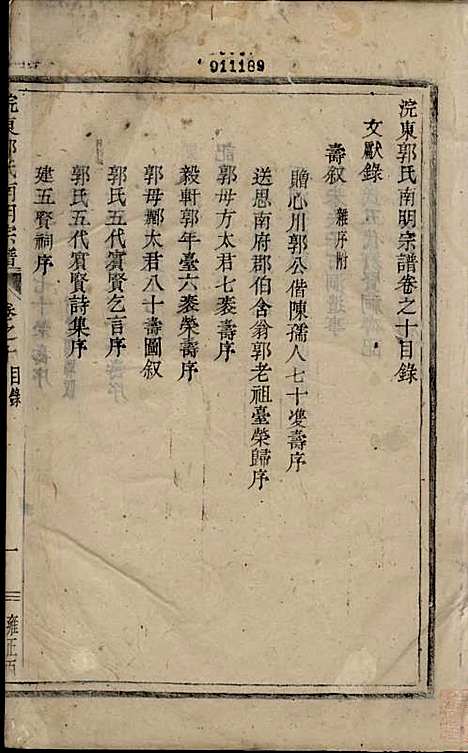 011189
浣東郭氏南明宗譜卷之十目錄
文獻錄
壽叙 雜序附
贈心川郭公偕陳孺人七十雙壽序
送思南府郡伯含翁郭老祖臺榮歸序
郭母方太君七袠壽序
毅軒郭年臺六袠榮壽序
郭母酈太君八十壽圖叙
郭氏五代賓賢乞言序
郭氏五代賓賢詩集序
建五賢祠序
浣東郭氏南明宗譜 卷之十 目錄 一 雍正